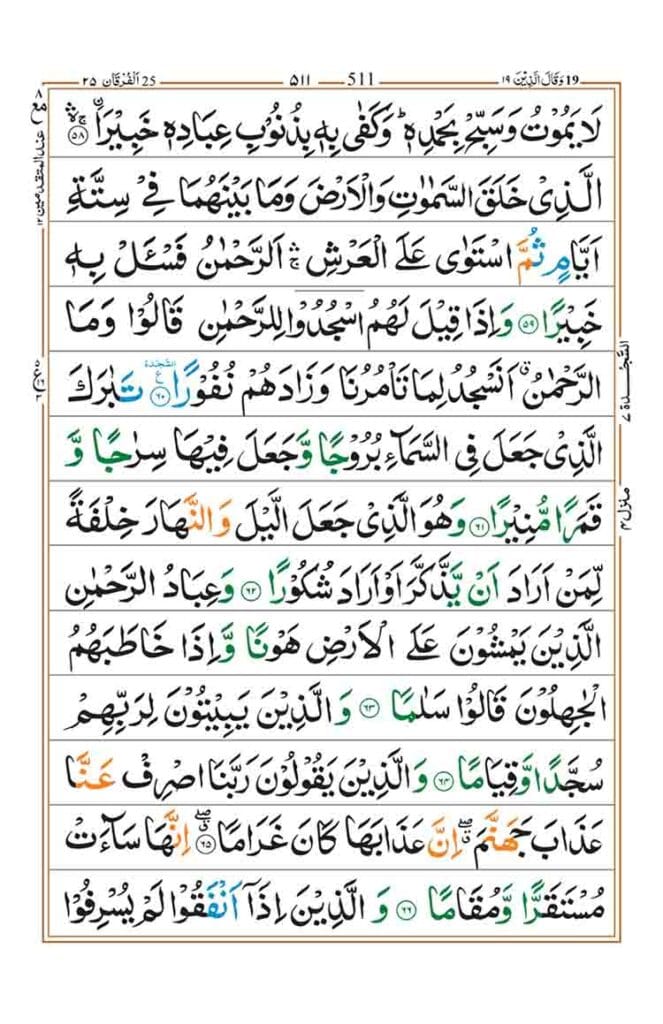 19 وَقَالَ الَّذِيْنَ ١٩ 511 ٥١١ 25 اَلْفُرْقَان ٢٥
لَا يَمُوْتُ وَسَبِّحْ بِحَمْدِهٖ ؕ وَكَفٰى بِهٖ بِذُنُوْبِ عِبَادِهٖ خَبِيْرًا ۛۚ ۙ ﴿۵۸﴾
الَّذِىْ خَلَقَ السَّمٰوٰتِ وَالْاَرْضَ وَمَا بَيْنَهُمَا فِىْ سِتَّةِ
اَيَّامٍ ثُمَّ اسْتَوٰى عَلَى الْعَرْشِ ۛۚ اَلرَّحْمٰنُ فَسْـَٔلْ بِهٖ
خَبِيْرًا ﴿۵۹﴾ وَاِذَا قِيْلَ لَهُمُ اسْجُدُوْا لِلرَّحْمٰنِ قَالُوْا وَمَا
الرَّحْمٰنُ ۗ اَنَسْجُدُ لِمَا تَاْمُرُنَا وَزَادَهُمْ نُفُوْرًا السَّجْدَة ع ﴿۶۰﴾ تَبٰرَكَ
الَّذِىْ جَعَلَ فِى السَّمَآءِ بُرُوْجًا وَّجَعَلَ فِيْهَا سِرٰجًا وَّ
قَمَرًا مُّنِيْرًا ﴿۶۱﴾ وَهُوَ الَّذِىْ جَعَلَ الَّيْلَ وَالنَّهَارَ خِلْفَةً
لِّمَنْ اَرَادَ اَنْ يَّذَّكَّرَ اَوْ اَرَادَ شُكُوْرًا ﴿۶۲﴾ وَعِبَادُ الرَّحْمٰنِ
الَّذِيْنَ يَمْشُوْنَ عَلَى الْاَرْضِ هَوْنًا وَّاِذَا خَاطَبَهُمُ
الْجٰهِلُوْنَ قَالُوْا سَلٰمًا ﴿۶۳﴾ وَالَّذِيْنَ يَبِيْتُوْنَ لِرَبِّهِمْ
سُجَّدًا وَّقِيَامًا ﴿۶۴﴾ وَالَّذِيْنَ يَقُوْلُوْنَ رَبَّنَا اصْرِفْ عَنَّا
عَذَابَ جَهَنَّمَ ۖ ۗ اِنَّ عَذَابَهَا كَانَ غَرَامًا ۖ ۗ ﴿۶۵﴾ اِنَّهَا سَآءَتْ
مُسْتَقَرًّا وَّمُقَامًا ﴿۶۶﴾ وَالَّذِيْنَ اِذَاۤ اَنْفَقُوْا لَمْ يُسْرِفُوْا
السَّجْدَة ٧
منزل ٤
مع ٨ عند المتقدمين ١٢